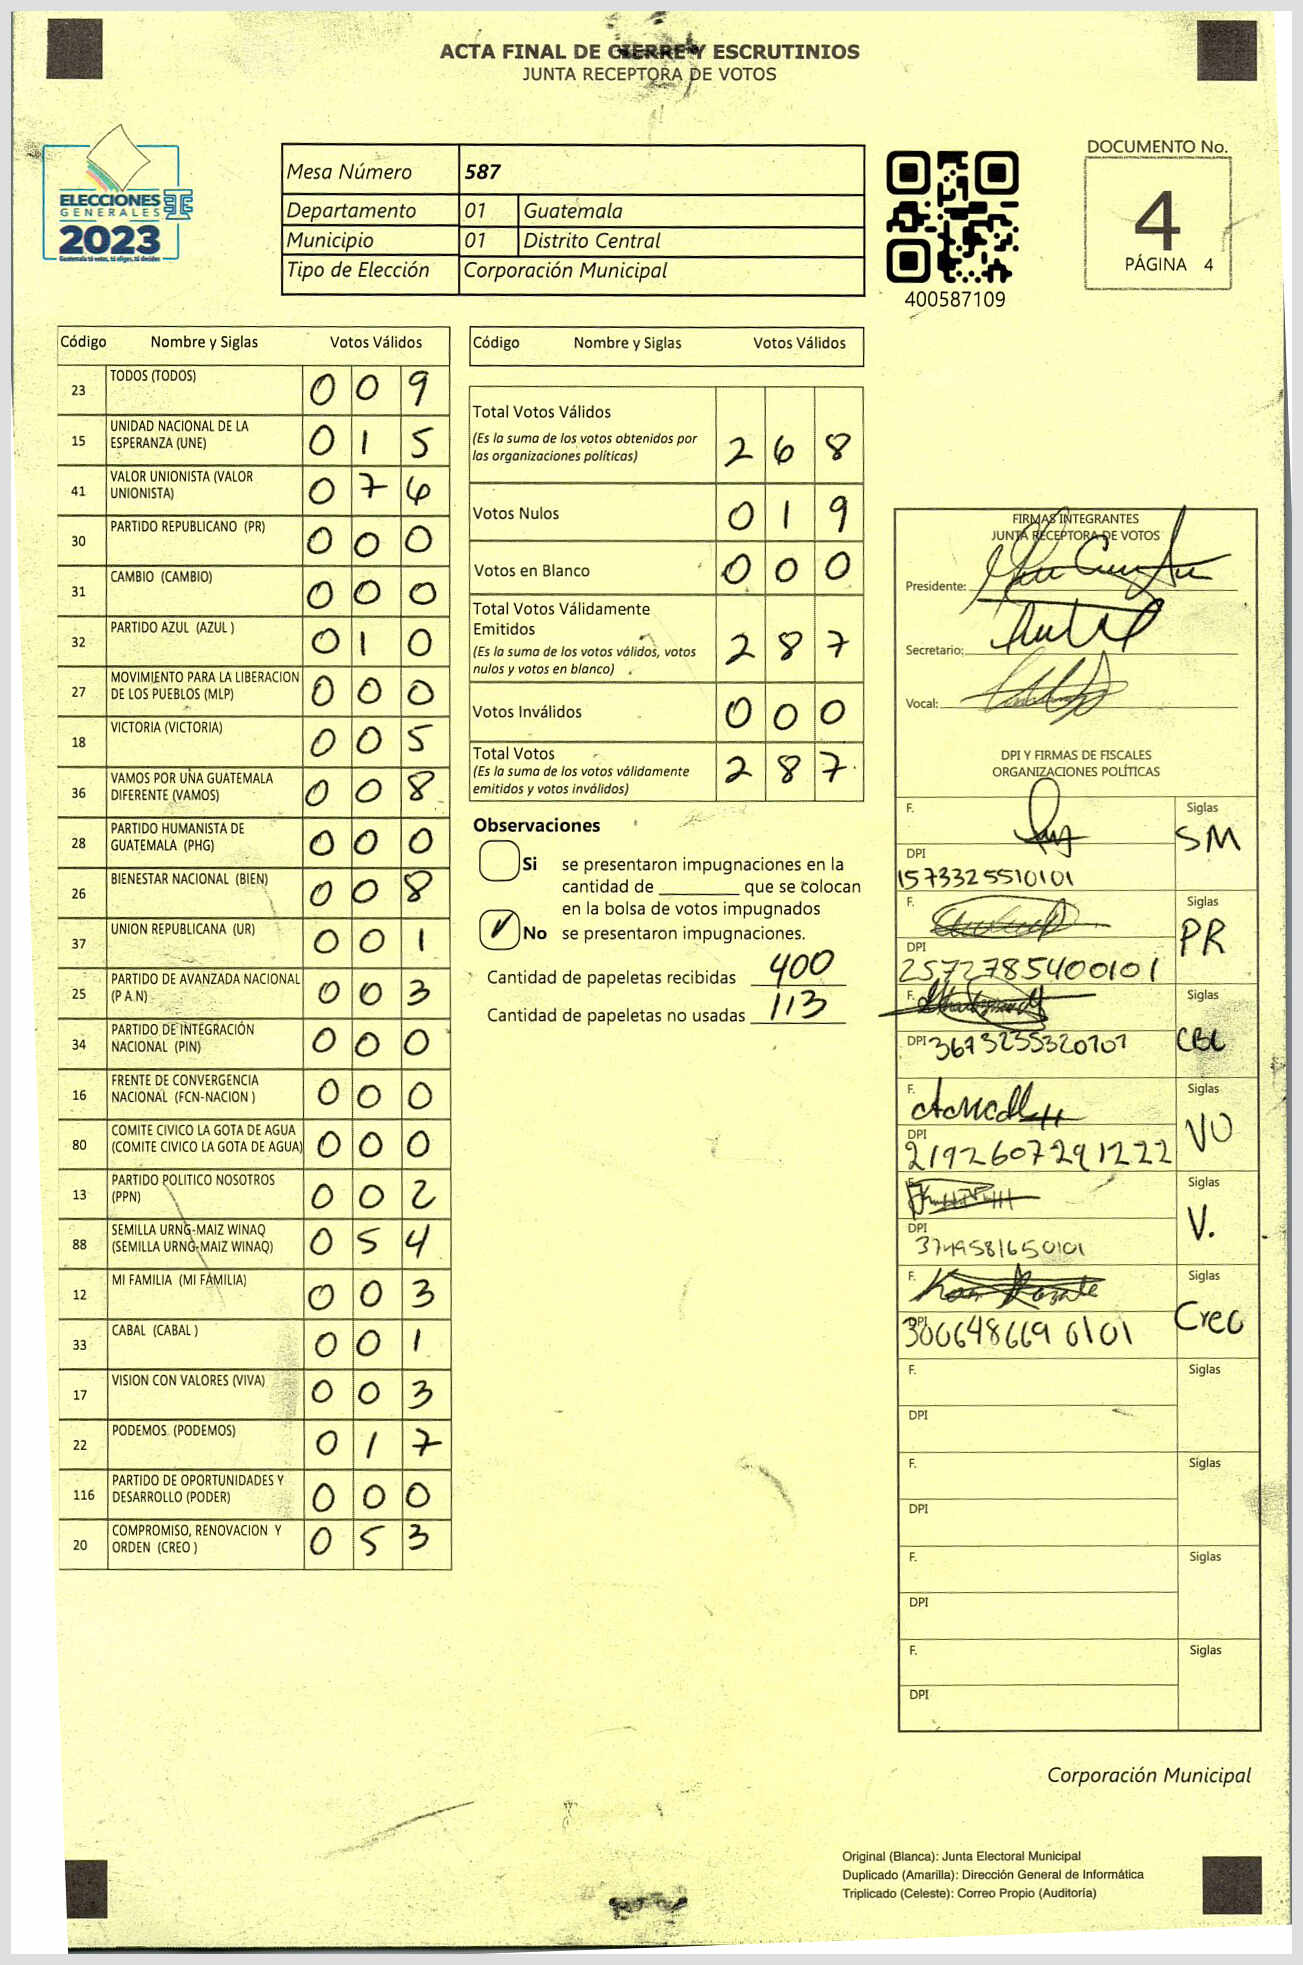 ACTA FINAL DE CIERRE Y ESCRUTINIOS
JUNTA RECEPTORA DE VOTOS
ELECCIONES
GENERALES
2023
Guatemala tú votas, tú eliges, tú decides
Mesa Número 587
Departamento 01 Guatemala
Municipio 01 Distrito Central
Tipo de Elección Corporación Municipal
400587109
DOCUMENTO No.
4
PÁGINA 4
Código Nombre y Siglas Votos Válidos
23 TODOS (TODOS) 0 0 9
15 UNIDAD NACIONAL DE LA ESPERANZA (UNE) 0 1 5
41 VALOR UNIONISTA (VALOR UNIONISTA) 0 7 6
30 PARTIDO REPUBLICANO (PR) 0 0 0
31 CAMBIO (CAMBIO) 0 0 0
32 PARTIDO AZUL (AZUL ) 0 1 0
27 MOVIMIENTO PARA LA LIBERACION DE LOS PUEBLOS (MLP) 0 0 0
18 VICTORIA (VICTORIA) 0 0 5
36 VAMOS POR UNA GUATEMALA DIFERENTE (VAMOS) 0 0 8
28 PARTIDO HUMANISTA DE GUATEMALA (PHG) 0 0 0
26 BIENESTAR NACIONAL (BIEN) 0 0 8
37 UNION REPUBLICANA (UR) 0 0 1
25 PARTIDO DE AVANZADA NACIONAL (P A N) 0 0 3
34 PARTIDO DE INTEGRACIÓN NACIONAL (PIN) 0 0 0
16 FRENTE DE CONVERGENCIA NACIONAL (FCN-NACION ) 0 0 0
80 COMITE CIVICO LA GOTA DE AGUA (COMITE CIVICO LA GOTA DE AGUA) 0 0 0
13 PARTIDO POLITICO NOSOTROS (PPN) 0 0 2
88 SEMILLA URNG-MAIZ WINAQ (SEMILLA URNG-MAIZ WINAQ) 0 5 4
12 MI FAMILIA (MI FAMILIA) 0 0 3
33 CABAL (CABAL ) 0 0 1
17 VISION CON VALORES (VIVA) 0 0 3
22 PODEMOS (PODEMOS) 0 1 7
116 PARTIDO DE OPORTUNIDADES Y DESARROLLO (PODER) 0 0 0
20 COMPROMISO, RENOVACION Y ORDEN (CREO ) 0 5 3
Código Nombre y Siglas Votos Válidos
Total Votos Válidos
(Es la suma de los votos obtenidos por
las organizaciones políticas) 2 6 8
Votos Nulos 0 1 9
Votos en Blanco 0 0 0
Total Votos Válidamente
Emitidos
(Es la suma de los votos válidos, votos
nulos y votos en blanco) 2 8 7
Votos Inválidos 0 0 0
Total Votos
(Es la suma de los votos válidamente
emitidos y votos inválidos) 2 8 7
Observaciones
Si se presentaron impugnaciones en la
cantidad de ________ que se colocan
en la bolsa de votos impugnados
No se presentaron impugnaciones.
Cantidad de papeletas recibidas 400
Cantidad de papeletas no usadas 113
FIRMAS INTEGRANTES
JUNTA RECEPTORA DE VOTOS
Presidente:
Secretario:
Vocal:
DPI Y FIRMAS DE FISCALES
ORGANIZACIONES POLÍTICAS
F. Siglas SM
DPI 1573325510101
F. Siglas PR
DPI 2572785400101
F. Siglas CBL
DPI 3673235320101
F. Siglas VU
DPI 2192607291222
F. Siglas V.
DPI 3749581650101
F. Siglas Creo
DPI 3006486690101
F. Siglas
DPI
F. Siglas
DPI
F. Siglas
DPI
F. Siglas
DPI
Corporación Municipal
Original (Blanca): Junta Electoral Municipal
Duplicado (Amarilla): Dirección General de Informática
Triplicado (Celeste): Correo Propio (Auditoría)